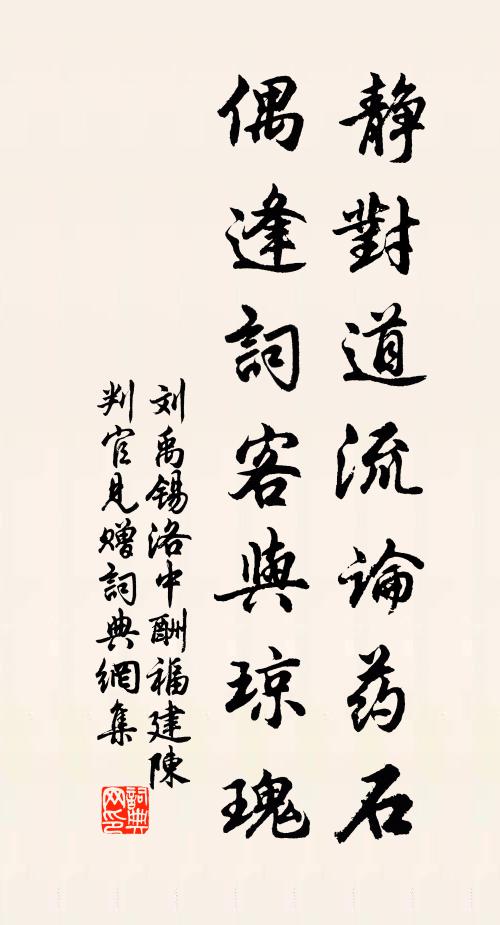 静對道流論药石
偶逢詞客與琼瑰
刘禹锡洛中酬福建陳
判官見贈詞典網集
詞典网印